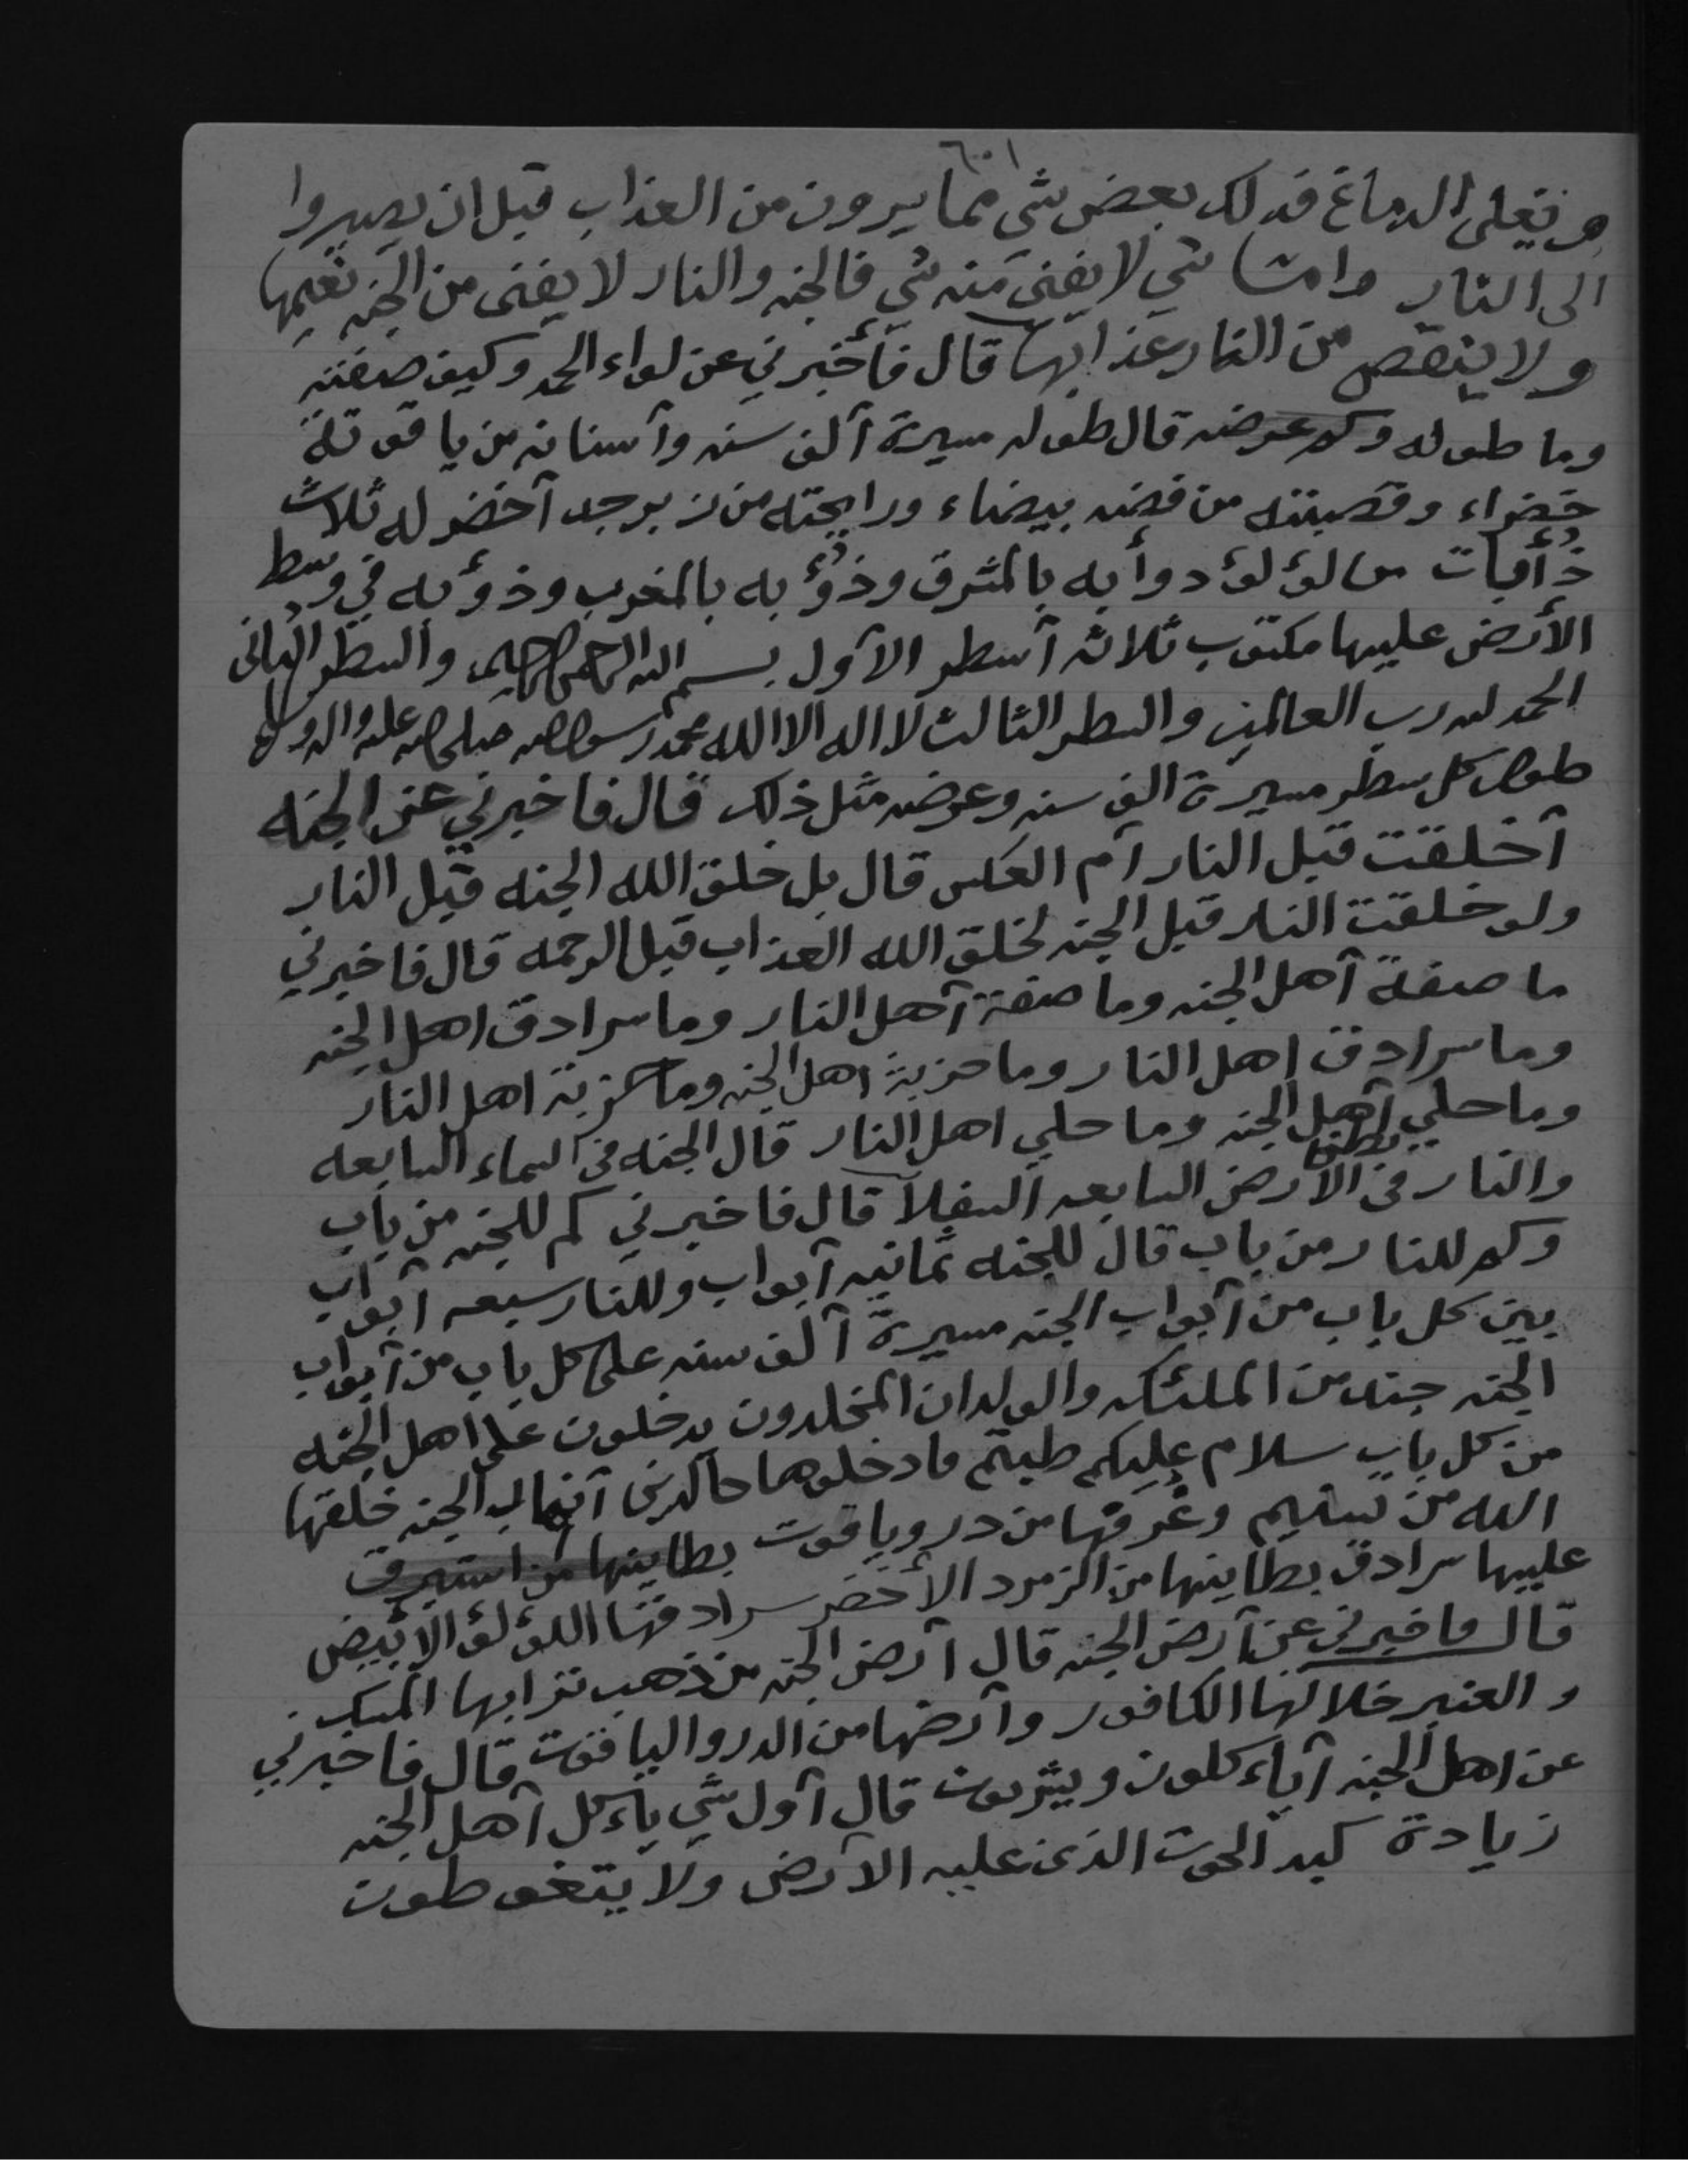 ٦٠١
هو تغلى الدماغ فذلك بعض شي مما يرون من العذاب قبل ان يصيروا
الى النار واما شي لا يفنى منه شي فالجنه والنار لا يفنى من الجنه نعيمها
ولا ينقص من النار عذابها قال فأخبرني عن لواء الحمد وكيف صفته
وما طوله وكم عرضه قال طوله مسيرة آلف سنه وآسنانه من ياقوتة
خضراء وقصبته من فضه بيضاء ورايحته من زبرجد آخضر له ثلاث
ذأبات من لؤلؤ دوأبه بالمشرق وذؤبه بالمغرب وذؤبه في وسط
الأرض عليها مكتوب ثلاثه آسطر الآول بسم الله الرحمن الرحيم والسطر الثاني
الحمد لله رب العالمين والسطر الثالث لا اله الا الله محمد رسول الله صلى الله عليه واله وسلم
طول كل سطر مسيرة الف سنه وعرضه مثل ذلك قال فاخبرني عن الجنه
آخلقت قبل النار آم العكس قال بل خلق الله الجنه قبل النار
ولو خلقت النار قبل الجنه لخلق الله العذاب قبل الرحمه قال فاخبرني
ما صفة آهل الجنه وما صفة آهل النار وما سرادق اهل الجنه
وما سرادق اهل النار وما حزبة اهل الجنه وما حزبة اهل النار
وما حلي آهل الجنه وما حلي اهل النار قال الجنه في السماء السابعه
والنار في الآرض السابعه السفلآ قال فاخبرني كم للجنه من باب
وكم للنار من باب قال للجنه ثمانيه آبواب وللنار سبعه آبواب
بين كل باب من آبواب الجنه مسيرة آلف سنه على كل باب من آبواب
الجنه جند من الملئكه والولدان المخلدون يدخلون على اهل الجنه
من كل باب سلام عليكم طبتم فادخلوها خالدين آنهار الجنه خلقها
الله من تسنيم وغرفها من در وياقوت بطاينها من استبرق
عليها سرادق بطاينها من الزمرد الأخضر سرادقها اللؤلؤ الابيض
قال فاخبرني عن آرض الجنه قال آرض الجنه من ذهب ترابها المسك
والعنبر خلالها الكافور وآرضها من الدر والياقوت قال فاخبرني
عن اهل الجنه آيأكلون ويشربون قال آول شي يأكل آهل الجنه
زيادة كبد الحوت الذى عليه الآرض ولا يتغوطون